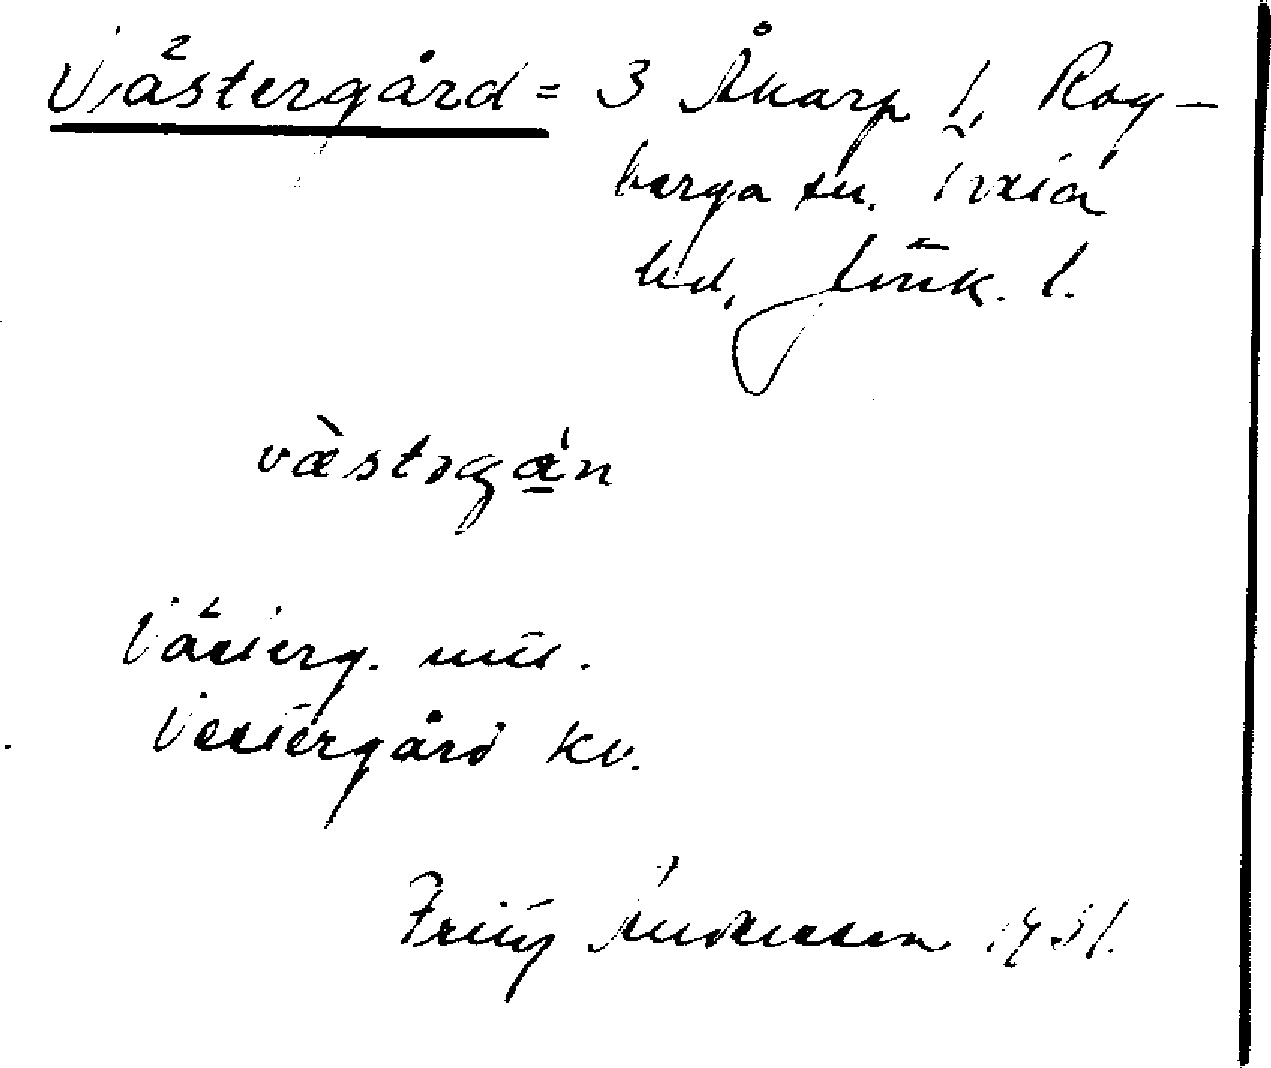 Västergård = 3 Åkarp 1, Rog-
berga sn. Tveta
hd, Jönk. l.
västrgán
Västerg. mtl.
Vestergård kv.
Fritz Andersson 1931.